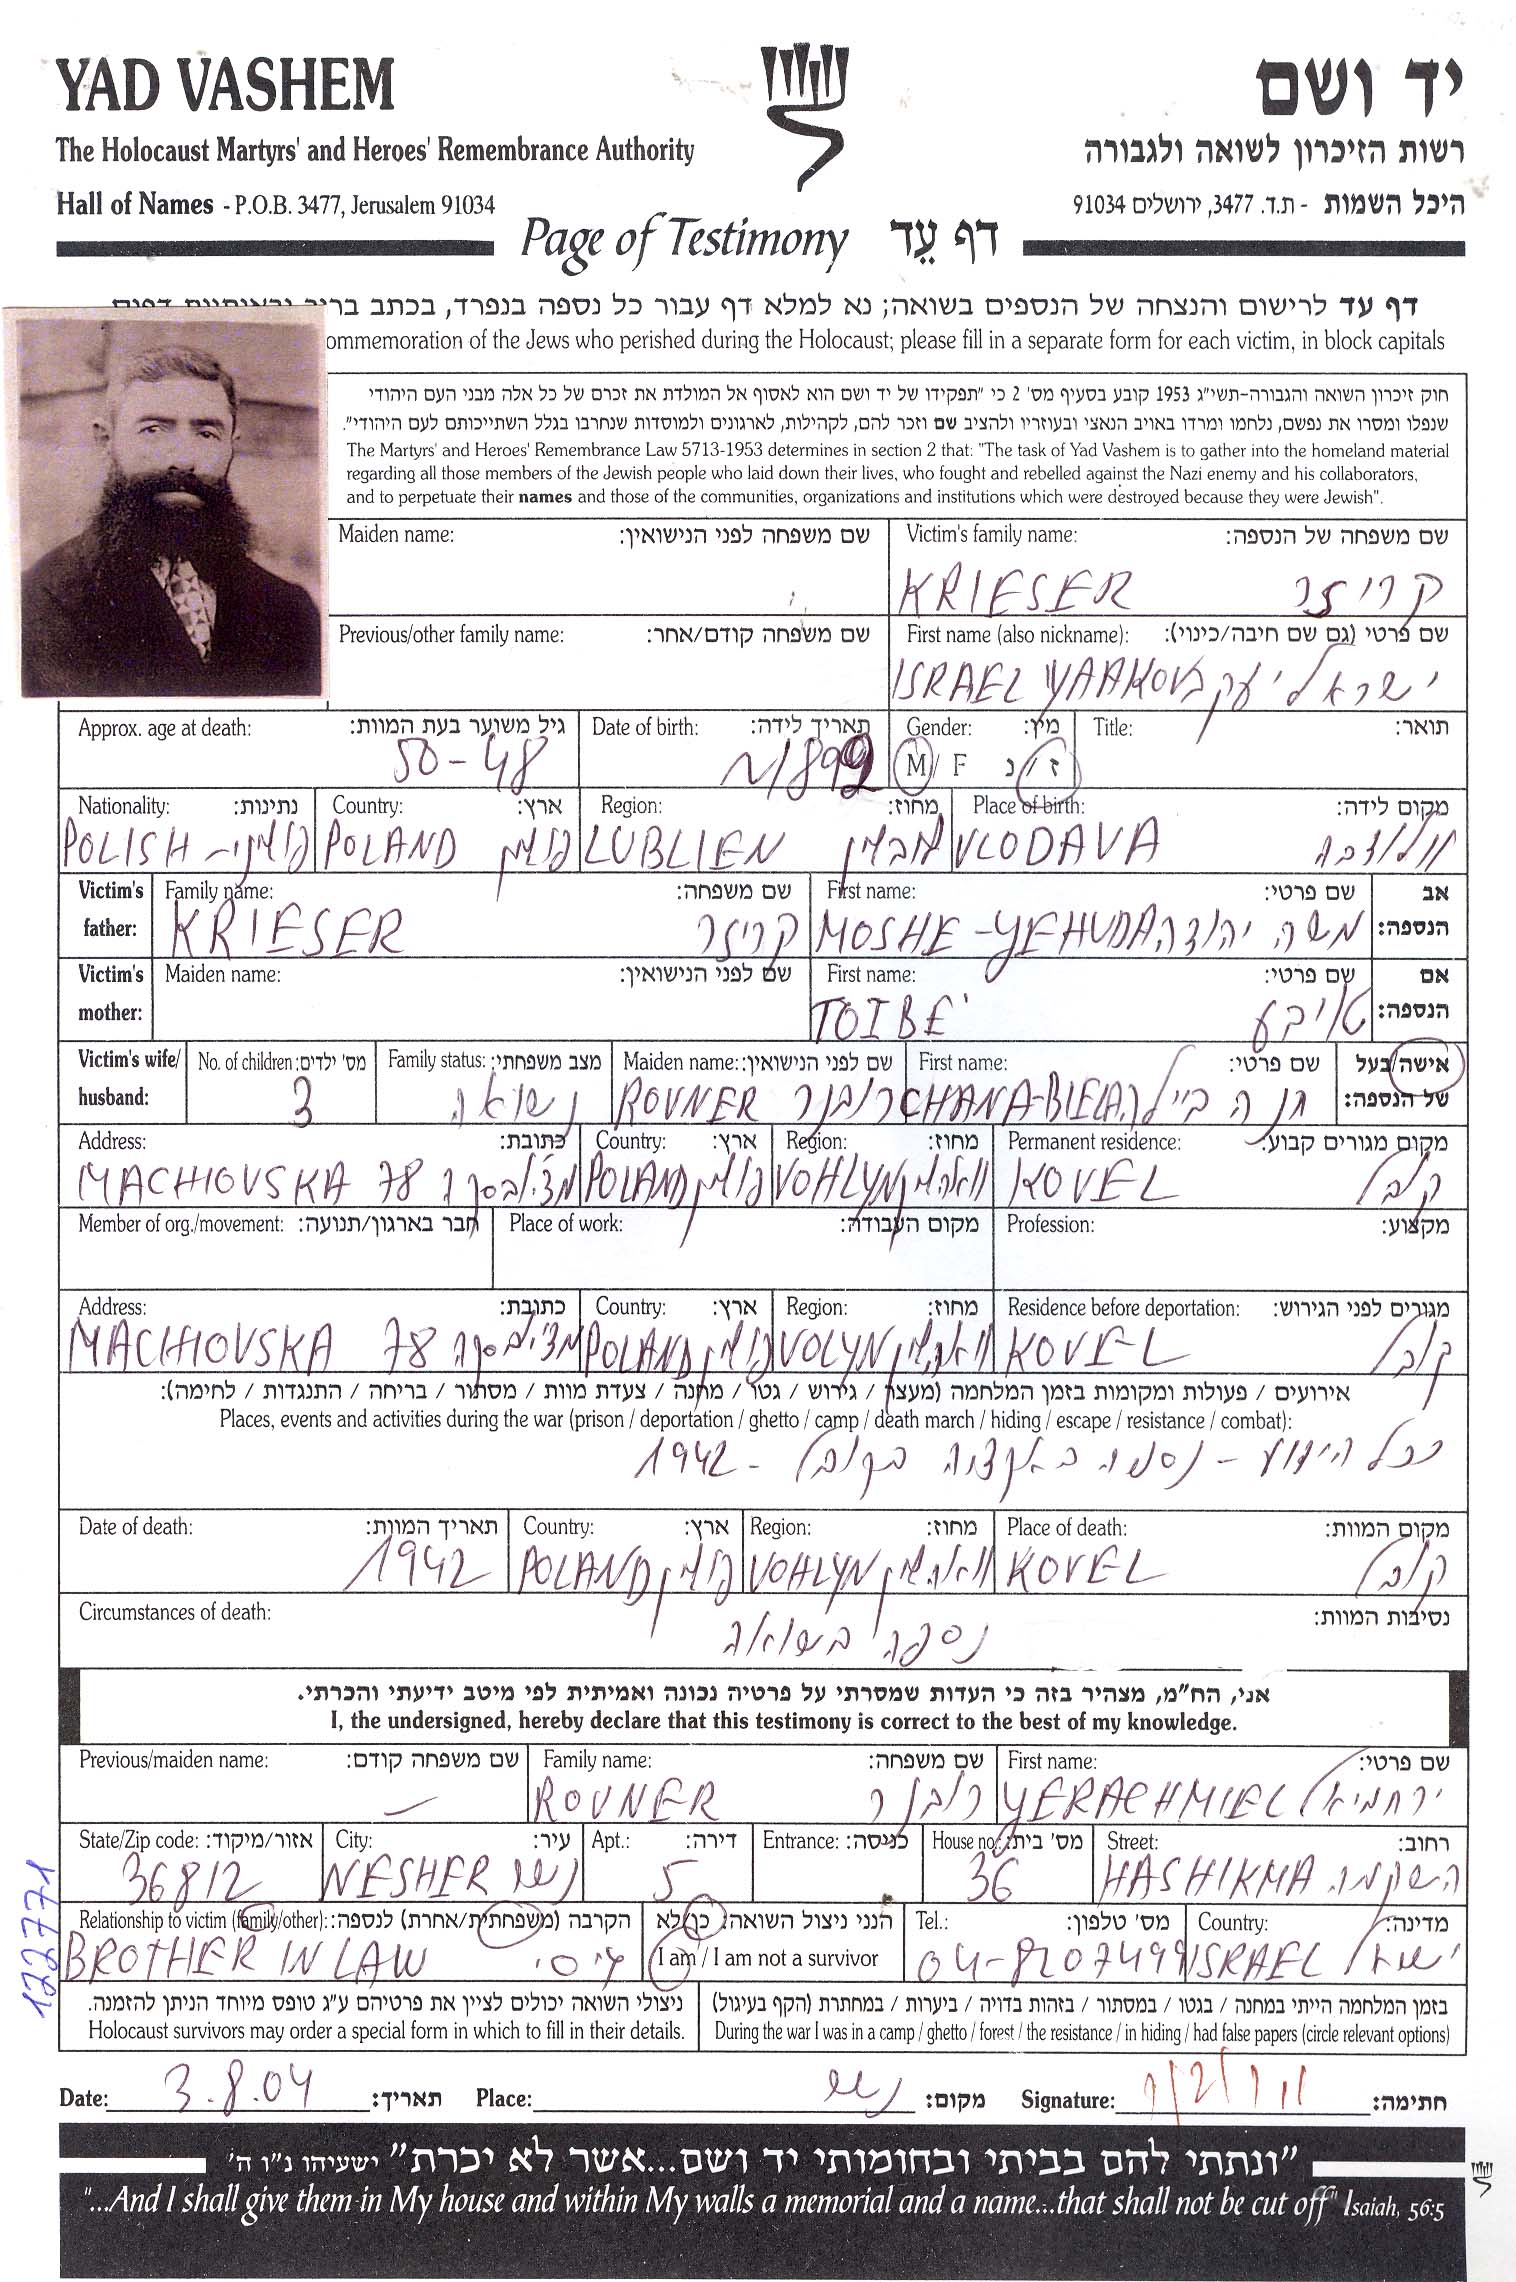 YAD VASHEM
יד ושם
The Holocaust Martyrs' and Heroes' Remembrance Authority
רשות הזיכרון לשואה ולגבורה
Hall of Names - P.O.B. 3477, Jerusalem 91034
היכל השמות - ת.ד. 3477, ירושלים 91034
Page of Testimony דף עֵד
דף עד לרישום והנצחה של הנספים בשואה; נא למלא דף עבור כל נספה בנפרד, בכתב
ommemoration of the Jews who perished during the Holocaust; please fill in a separate form for each victim, in block capitals
חוק זיכרון השואה והגבורה-תשי"ג 1953 קובע בסעיף מס' 2 כי "תפקידו של יד ושם הוא לאסוף אל המולדת את זכרם של כל אלה מבני העם היהודי
שנפלו ומסרו את נפשם, נלחמו ומרדו באויב הנאצי ובעוזריו ולהציב שם וזכר להם, לקהילות, לארגונים ולמוסדות שנחרבו בגלל השתייכותם לעם היהודי".
The Martyrs' and Heroes' Remembrance Law 5713-1953 determines in section 2 that: "The task of Yad Vashem is to gather into the homeland material
regarding all those members of the Jewish people who laid down their lives, who fought and rebelled against the Nazi enemy and his collaborators,
and to perpetuate their names and those of the communities, organizations and institutions which were destroyed because they were Jewish".
Maiden name: שם משפחה לפני הנישואין: Victim's family name: שם משפחה של הנספה:
KRIESER קריזר
Previous/other family name: שם משפחה קודם/אחר: First name (also nickname): שם פרטי (גם שם חיבה/כינוי):
ISRAEL YAAKOV ישראל יעקב
Approx. age at death: גיל משוער בעת המוות: Date of birth: תאריך לידה: Gender: מין: Title: תואר:
50-48 1892 M/ F ז/נ
Nationality: נתינות: Country: ארץ: Region: מחוז: Place of birth: מקום לידה:
POLISH פולני POLAND פולין LUBLIEN לובלין VLODAVA וולודבה
Victim's father: Family name: שם משפחה: First name: שם פרטי: אב הנספה:
KRIESER קריזר MOSHE-YEHUDA משה יהודה
Victim's mother: Maiden name: שם לפני הנישואין: First name: שם פרטי: אם הנספה:
TOIBE' טויבע
Victim's wife/ husband: No. of children: מס' ילדים: Family status: מצב משפחתי: Maiden name: שם לפני הנישואין: First name: שם פרטי: אישה/בעל של הנספה:
3 נשואה ROVNER רובנר CHANA-BIELA חנה ביילה
Address: כתובת: Country: ארץ: Region: מחוז: Permanent residence: מקום מגורים קבוע:
MACHIOVSKA 78 POLAND פולין VOHLYN ווהלין KOVEL קובל
Member of org./movement: חבר בארגון/תנועה: Place of work: מקום העבודה: Profession: מקצוע:
Address: כתובת: Country: ארץ: Region: מחוז: Residence before deportation: מגורים לפני הגירוש:
MACHIOVSKA 78 POLAND פולין VOLYN KOVEL קובל
אירועים / פעולות ומקומות בזמן המלחמה (מעצר / גירוש / גטו / מחנה / צעדת מוות / מסתור / בריחה / התנגדות / לחימה):
Places, events and activities during the war (prison / deportation / ghetto / camp / death march / hiding / escape / resistance / combat):
ככל הידוע - נספה באקציה בקובל - 1942
Date of death: תאריך המוות: Country: ארץ: Region: מחוז: Place of death: מקום המוות:
1942 POLAND פולין VOHLYN KOVEL קובל
Circumstances of death: נסיבות המוות:
נספה בשואה
אני, הח"מ, מצהיר בזה כי העדות שמסרתי על פרטיה נכונה ואמיתית לפי מיטב ידיעתי והכרתי.
I, the undersigned, hereby declare that this testimony is correct to the best of my knowledge.
Previous/maiden name: שם משפחה קודם: Family name: שם משפחה: First name: שם פרטי:
— ROVNER רובנר YERACHMIEL ירחמיאל
State/Zip code: אזור/מיקוד: City: עיר: Apt.: דירה: Entrance: כניסה: House no.: מס' בית: Street: רחוב:
36812 NESHER נשר 5 36 HASHIKMA השקמה
Relationship to victim (family/other): הקרבה (משפחתית/אחרת) לנספה: הנני ניצול השואה: כן/לא Tel.: מס' טלפון: Country: מדינה:
BROTHER IN LAW גיסי I am / I am not a survivor 04-8207499 ISRAEL ישראל
ניצולי השואה יכולים לציין את פרטיהם ע"ג טופס מיוחד הניתן להזמנה. בזמן המלחמה הייתי במחנה / בגטו / במסתור / בזהות בדויה / ביערות / במחתרת (הקף בעיגול)
Holocaust survivors may order a special form in which to fill in their details. During the war I was in a camp / ghetto / forest / the resistance / in hiding / had false papers (circle relevant options)
122771
Date: 3.8.04 תאריך: Place: נשר מקום: Signature: חתימה:
"ונתתי להם בביתי ובחומותי יד ושם...אשר לא יכרת" ישעיהו נ"ו ה'
"...And I shall give them in My house and within My walls a memorial and a name...that shall not be cut off" Isaiah, 56:5